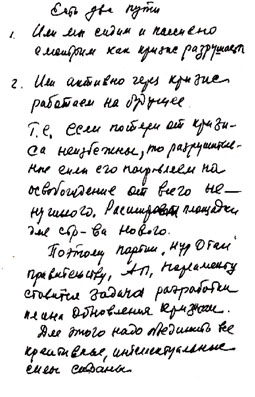 Есть два пути
1. Или мы сидим и пассивно
смотрим как кризис разрушает
2. Или активно через кризис
работаем на будущее.
Т.е. если потери от кризи-
са неизбежны, то разрушитель-
ные силы его направляем на
освобождение от всего не-
нужного. Расширяем площадки
для стр-ва нового.
Поэтому партии „Нур Отан"
правительству, АП, парламенту
ставится задача разработки
плана обновления
Для этого надо объединить все
креативные, интеллектуальные
силы страны